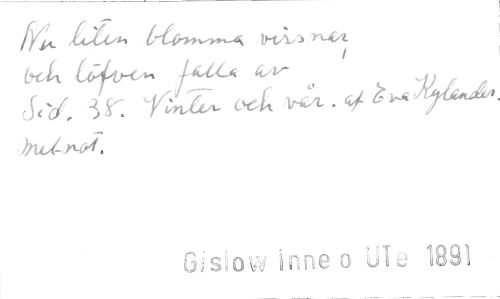 Nu liten blomma vissnar,
och löfven falla av
Sid. 38. Vinter och vår. af Eva Kylander.
met not.
Gislow Inne o UTe 1891